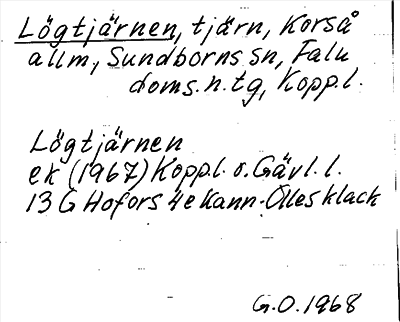 Lögtjärnen, tjärn, Korså
allm, Sundborns sn, Falu
doms. n. tg, Kopp.l.
Lögtjärnen
ek (1967) Kopp.l. o. Gävl. l.
13 G Hofors 4e Kann-Olles klack
G.O. 1968